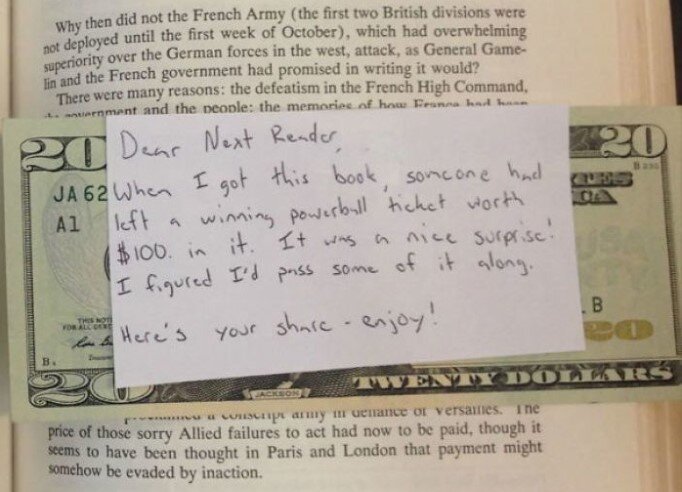 Why then did not the French Army (the first two British divisions were
not deployed until the first week of October), which had overwhelming
superiority over the German forces in the west, attack, as General Game-
lin and the French government had promised in writing it would?
There were many reasons: the defeatism in the French High Command,
government and the people; the memories of how France had been
20
20
JA 62
A1
Dear Next Reader,
When I got this book, someone had
left a winning powerball ticket worth
$100. in it. It was a nice surprise!
I figured I'd pass some of it along.
Here's your share - enjoy!
THIS NOTE
FOR ALL
B
20
20
JACKSON
TWENTY DOLLARS
a conscript army in defiance of Versailles. The
price of those sorry Allied failures to act had now to be paid, though it
seems to have been thought in Paris and London that payment might
somehow be evaded by inaction.